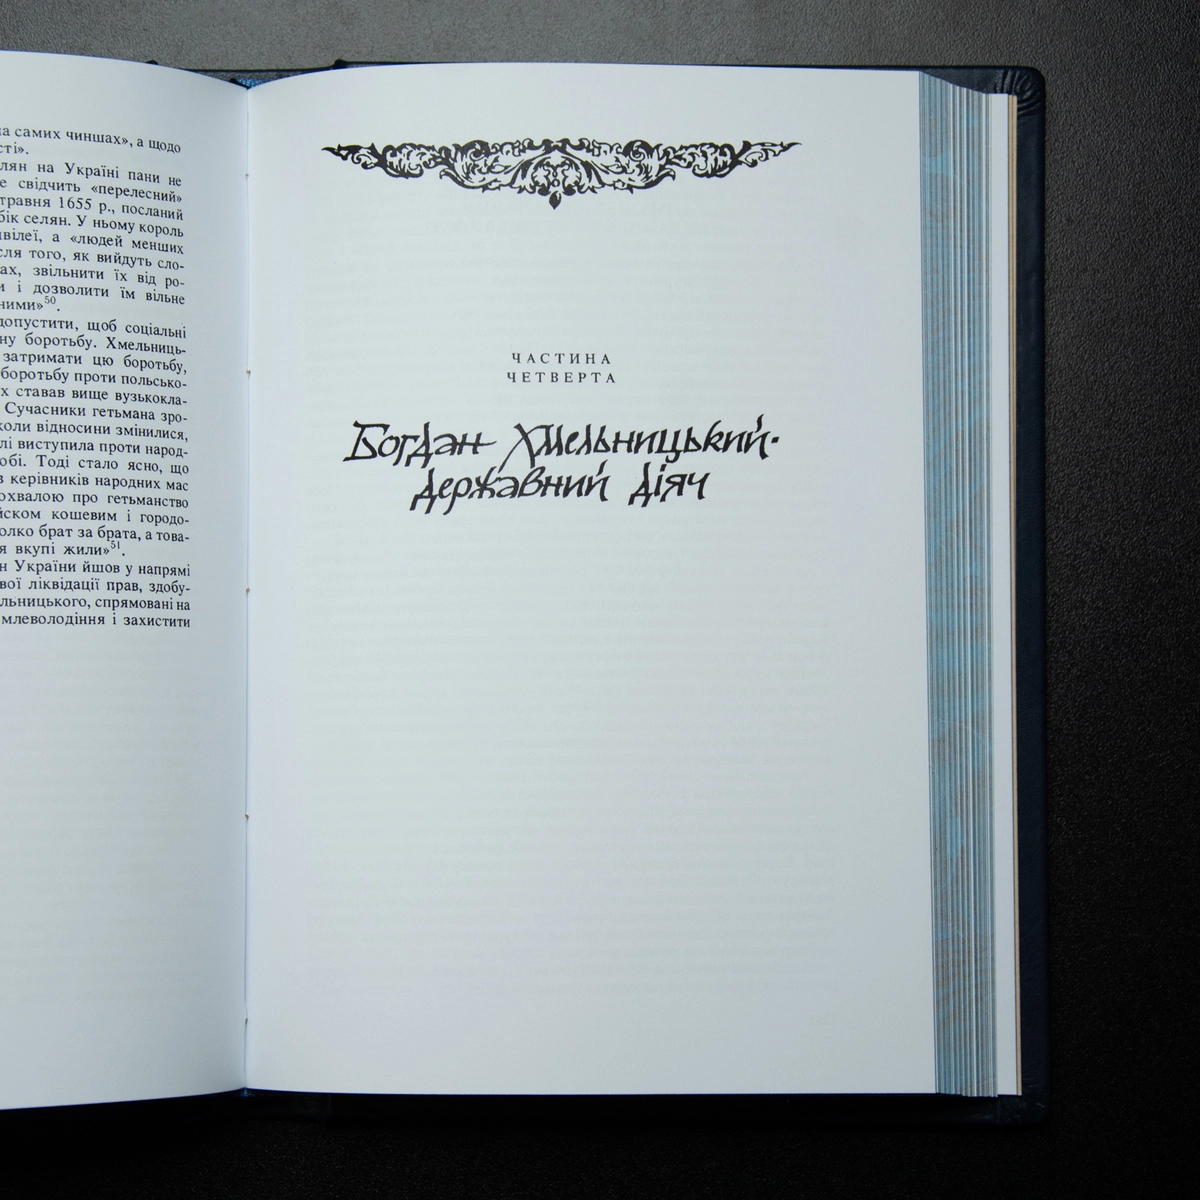 на самих чиншах», а щодо
сті».
лян на Україні пани не
е свідчить «перелесний»
травня 1655 р., посланий
бік селян. У ньому король
ивілеї, а «людей менших
ля того, як вийдуть сло-
ах, звільнити їх від ро-
и і дозволити їм вільне
ними»50.
допустити, щоб соціальні
ну боротьбу. Хмельниць-
затримати цю боротьбу,
боротьбу проти польсько-
х ставав вище вузькокла-
Сучасники гетьмана зро-
коли відносини змінилися,
лі виступила проти народ-
обі. Тоді стало ясно, що
в керівників народних мас
охвалою про гетьманство
йском кошевим і городо-
олко брат за брата, а това-
я вкупі жили»51.
н України йшов у напрямі
вої ліквідації прав, здобу-
льницького, спрямовані на
млеволодіння і захистити
ЧАСТИНА
ЧЕТВЕРТА
Богдан Хмельницький-
державний діяч